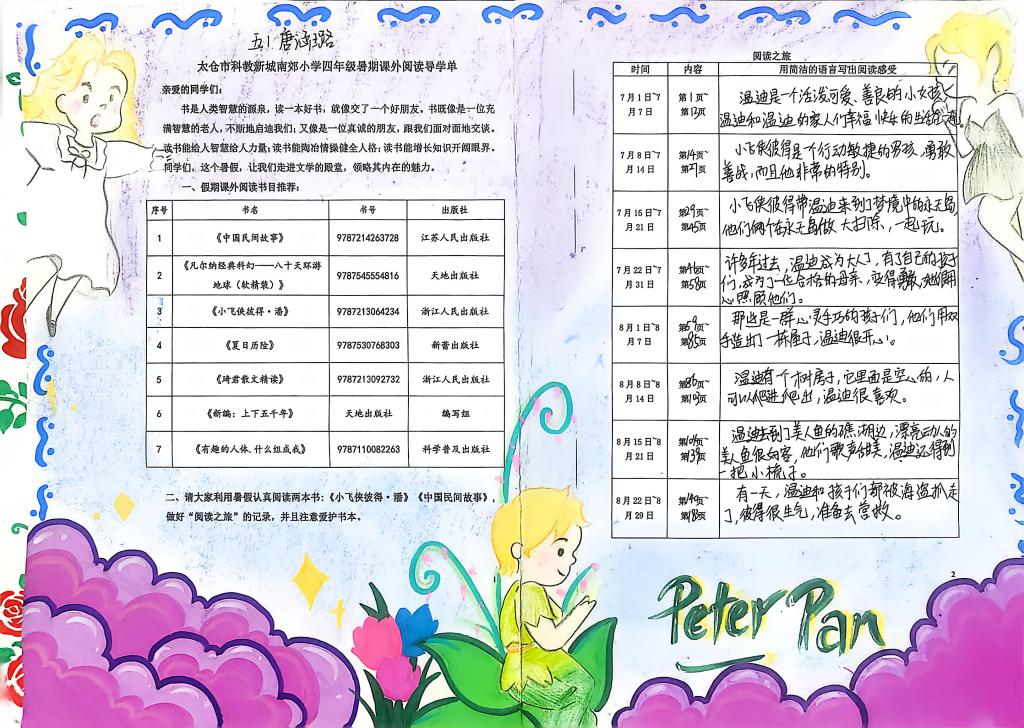 五1 唐涵璐
太仓市科教新城南郊小学四年级暑期课外阅读导学单
亲爱的同学们：
书是人类智慧的源泉，读一本好书，就像交了一个好朋友。书既像是一位充
满智慧的老人，不断地启迪我们；又像是一位真诚的朋友，跟我们面对面地交谈。
读书能给人智慧给人力量；读书能陶冶情操健全人格；读书能增长知识开阔眼界。
同学们，这个暑假，让我们走进文学的殿堂，领略其内在的魅力。
一、假期课外阅读书目推荐：
序号 书名 书号 出版社
1 《中国民间故事》 9787214263728 江苏人民出版社
2 《凡尔纳经典科幻——八十天环游
地球（软精装）》 9787545554816 天地出版社
3 《小飞侠彼得·潘》 9787213064234 浙江人民出版社
4 《夏日历险》 9787530768303 新蕾出版社
5 《琦君散文精读》 9787213092732 浙江人民出版社
6 《新编：上下五千年》 天地出版社 编写组
7 《有趣的人体，什么组成我》 9787110082263 科学普及出版社
二、请大家利用暑假认真阅读两本书：《小飞侠彼得·潘》《中国民间故事》，
做好“阅读之旅”的记录，并且注意爱护书本。
1
阅读之旅
时间 内容 用简洁的语言写出阅读感受
7月1日~7
月7日
第1页~
第13页
温迪是一个活泼可爱、善良的小女孩，
温迪和温迪的家人们幸福快乐的生活
7月8日~7
月14日
第14页~
第27页
小飞侠彼得是个行动敏捷的男孩，勇敢
善战，而且他非常的特别。
7月15日~7
月21日
第29页~
第45页
小飞侠彼得带温迪来到了梦境中的永无岛，
他们俩个在永无岛做大扫除，一起玩。
7月22日~7
月31日
第46页~
第58页
许多年过去，温迪成为大人了，有了自己的孩子
们，成为了一位合格的母亲，变得勇敢，她用
心照顾他们。
8月1日~8
月7日
第59页~
第85页
那些是一群心灵手巧的孩子们，他们用双
手造出了一栋屋子，温迪很开心。
8月8日~8
月14日
第86页~
第103页
温迪有个树房子，它里面是空心的，人
可以爬进爬出，温迪很喜欢。
8月15日~8
月21日
第104页~
第139页
温迪去到了美人鱼的礁湖边，漂亮动人的
美人鱼很好客，他们歌声甜美，温迪还得到
一把小梳子。
8月22日~8
月29日
第140页~
有一天，温迪和孩子们都被海盗抓走
了，彼得很生气，准备去营救。
2
Peter Pan